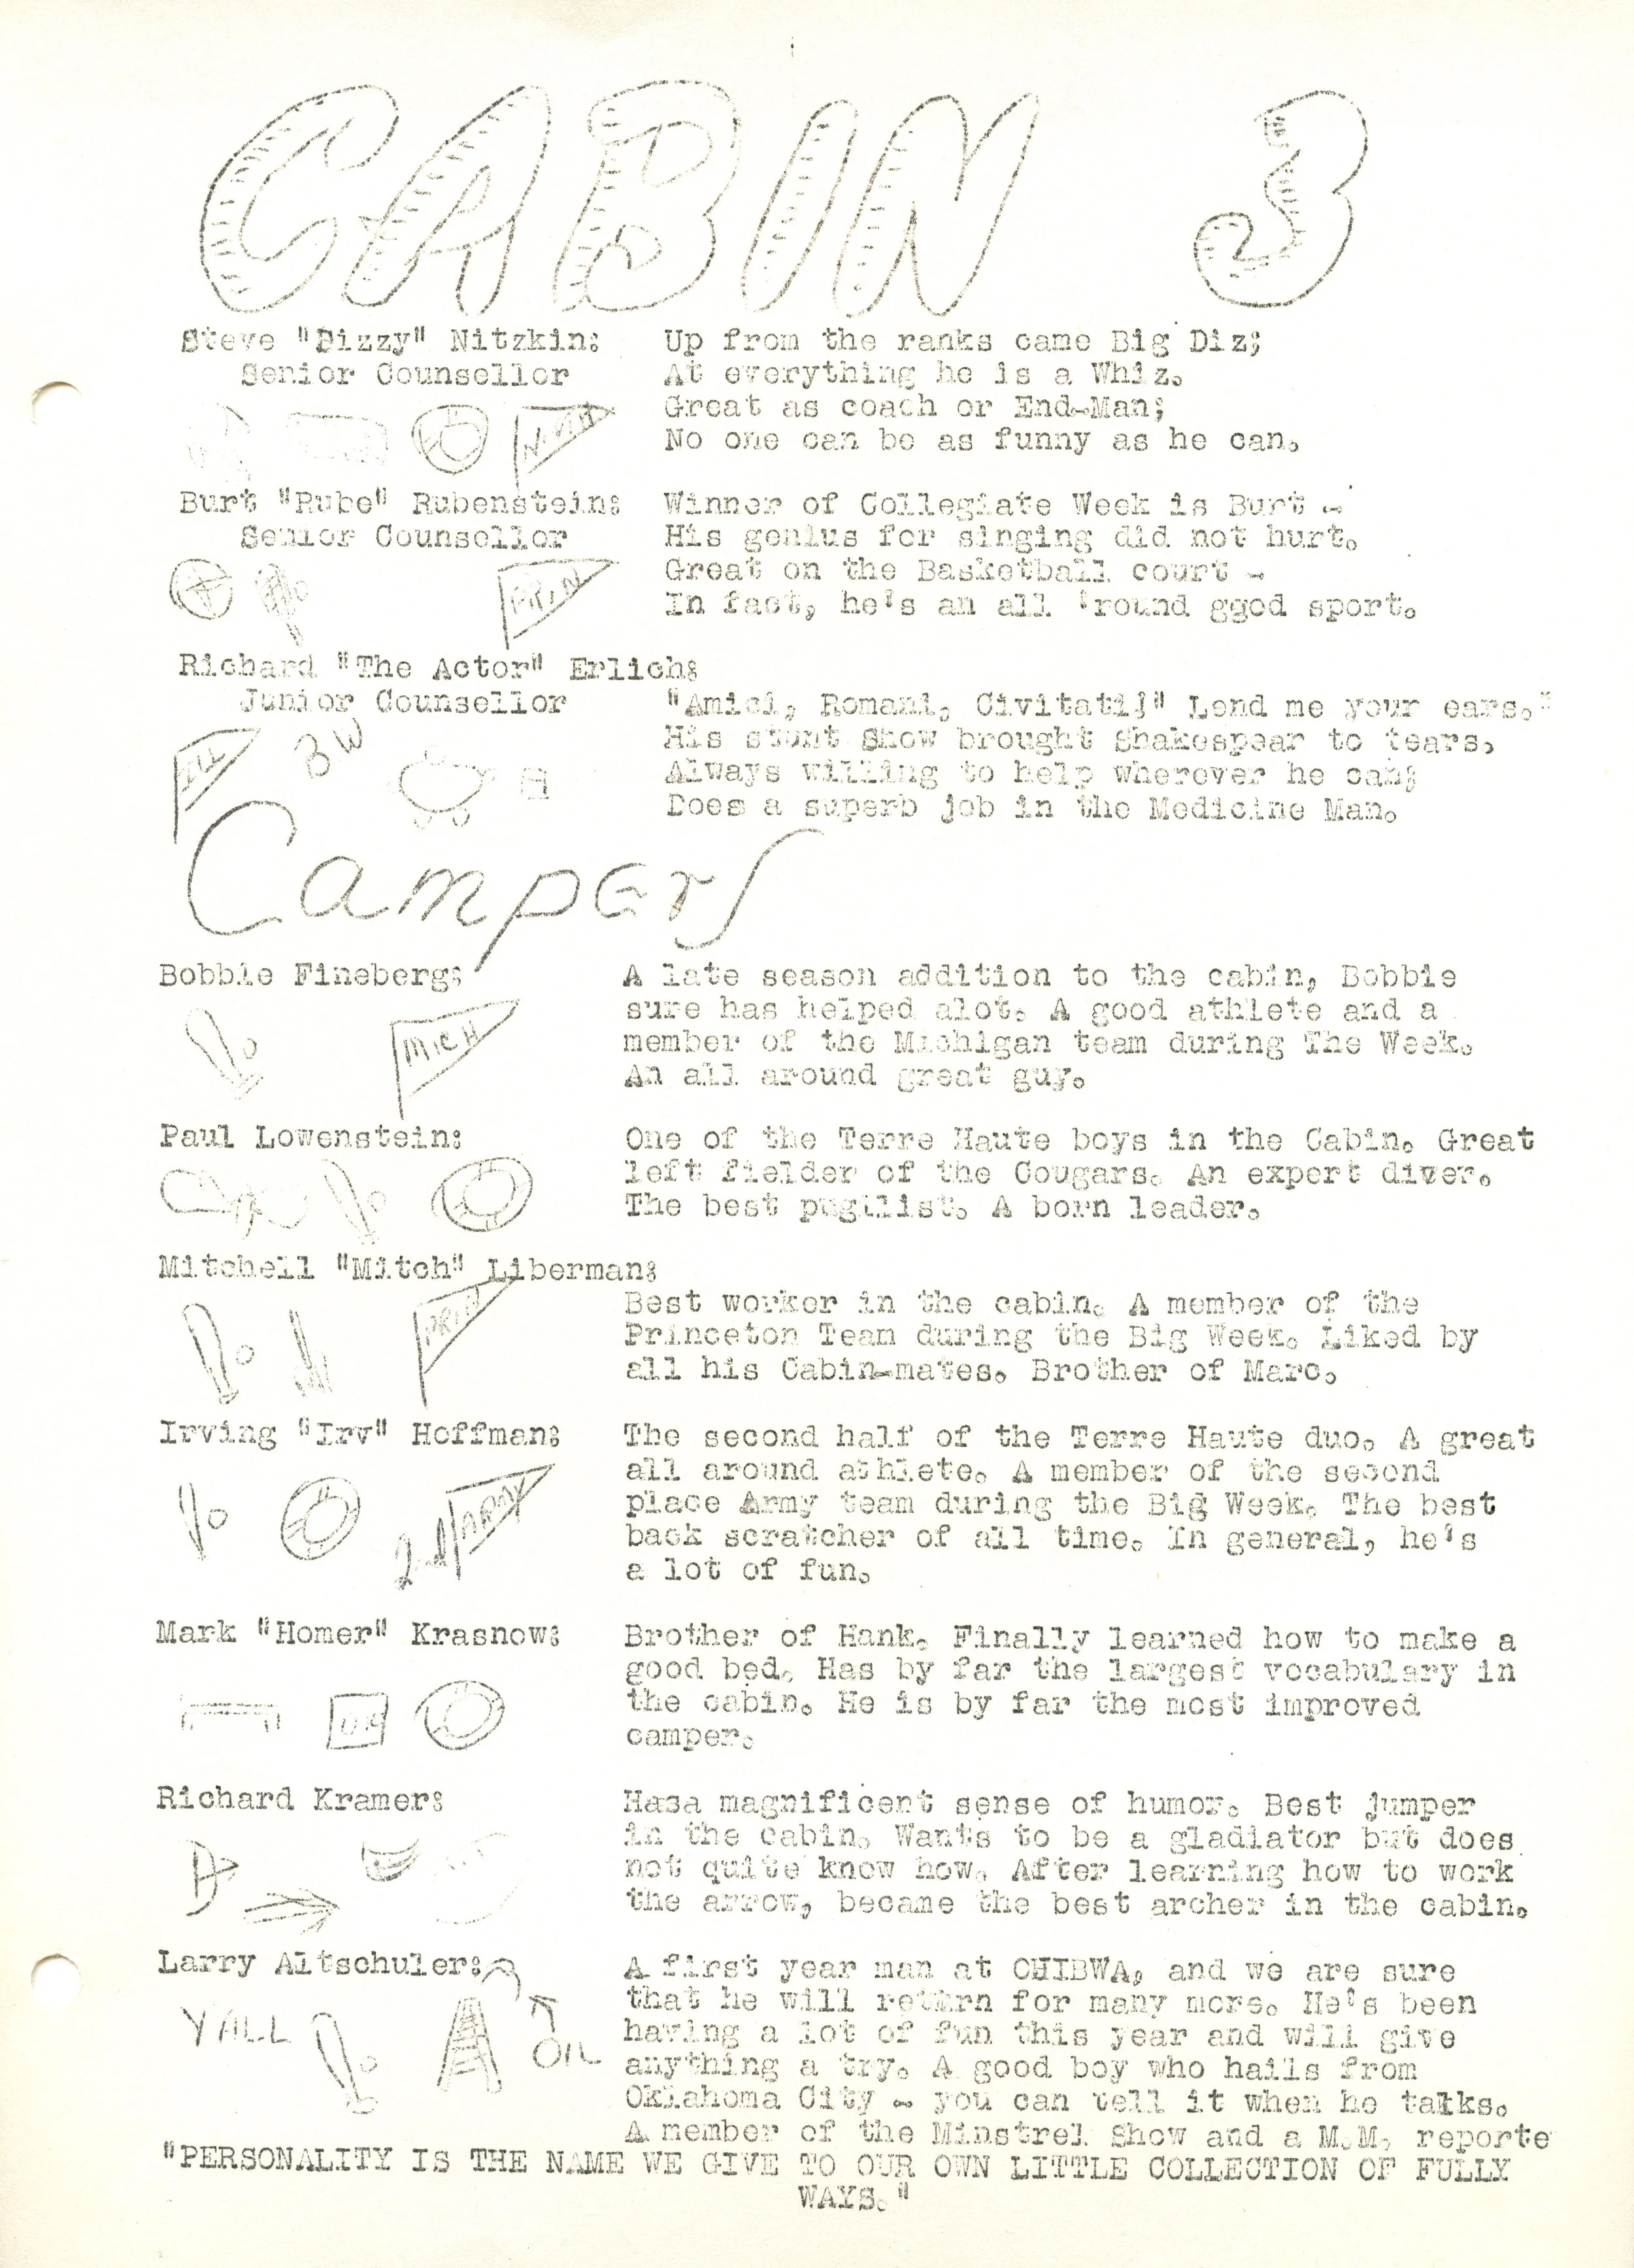 CABIN 3
Steve "Dizzy" Nitzkin: Up from the ranks came Big Diz;
Senior Counsellor At everything he is a Whiz.
Great as coach or End-Man;
No one can be as funny as he can.
Burt "Rube" Rubenstein: Winner of Collegiate Week is Burt -
Senior Counsellor His genius for singing did not hurt.
Great on the Basketball court -
PRIN In fact, he's an all 'round ggod sport.
Richard "The Actor" Erlich:
Junior Counsellor "Amici, Romani, Civitati!" Lend me your ears."
BW His stunt Show brought Shakespear to tears,
ILL Always willing to help wherever he can;
Does a superb job in the Medicine Man.
Campers
Bobbie Fineberg: A late season addition to the cabin, Bobbie
sure has helped alot. A good athlete and a
MICH member of the Michigan team during The Week.
An all around great guy.
Paul Lowenstein: One of the Terre Haute boys in the Cabin. Great
left fielder of the Cougars. An expert diver.
The best pugilist. A born leader.
Mitchell "Mitch" Liberman:
PRIN Best worker in the cabin. A member of the
Princeton Team during the Big Week. Liked by
all his Cabin-mates. Brother of Marc.
Irving "Irv" Hoffman: The second half of the Terre Haute duo. A great
all around athlete. A member of the second
2nd ARMY place Army team during the Big Week. The best
back scratcher of all time. In general, he's
a lot of fun.
Mark "Homer" Krasnow: Brother of Hank. Finally learned how to make a
good bed. Has by far the largest vocabulary in
the cabin. He is by far the most improved
camper.
Richard Kramer: Hasa magnificent sense of humor. Best jumper
in the cabin. Wants to be a gladiator but does
not quite know how. After learning how to work
the arrow, became the best archer in the cabin.
Larry Altschuler: A first year man at OHIBWA, and we are sure
that he will return for many more. He's been
Y'ALL OIL having a lot of fun this year and will give
anything a try. A good boy who hails from
Oklahoma City - you can tell it when he talks.
A member of the Minstrel Show and a M.M. reporte
"PERSONALITY IS THE NAME WE GIVE TO OUR OWN LITTLE COLLECTION OF FULLY
WAYS."